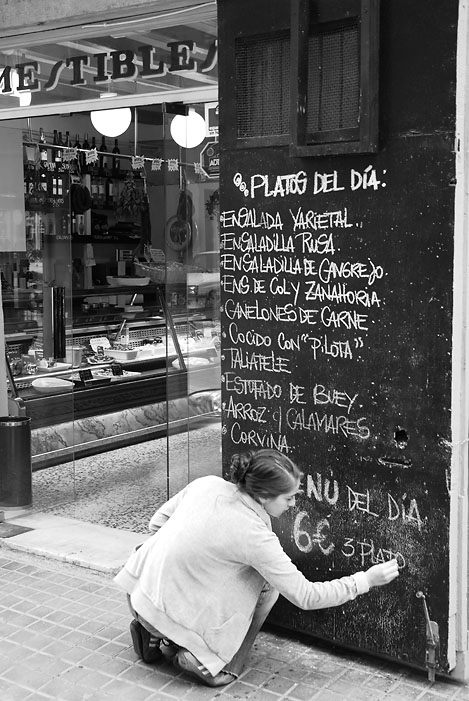 MESTIBLES
PLATOS DEL DÍA:
ENSALADA VARIETAL.
ENSALADILLA RUSA.
ENSALADILLA DE CANGREJO
ENS. DE COL Y ZANAHORIA
CANELONES DE CARNE
COCIDO CON "PILOTA".
TALIATELE
ESTUFADO DE BUEY.
ARROZ C/ CALAMARES
CORVINA.
ENU DEL DÍA
6€ 3 PLATO